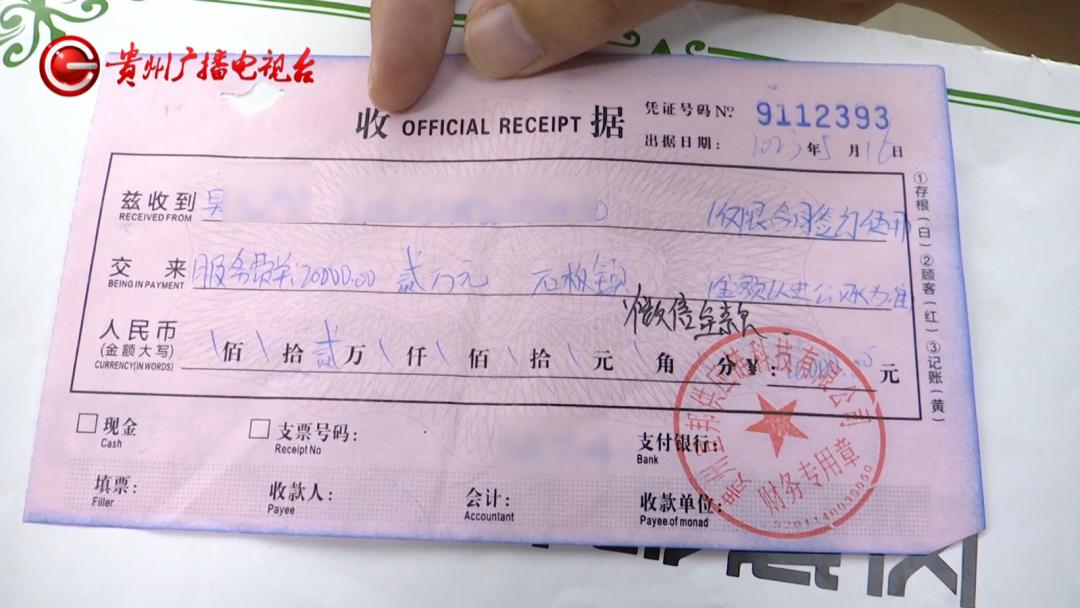 贵州广播电视台
收 OFFICIAL RECEIPT 据
凭证号码 Nº 9112393
出据日期: 2023 年 5 月 16 日
兹收到 吴
RECEIVED FROM
(仅限合同签订使用
交 来 服务费 20000.00 贰万元
BEING IN PAYMENT
金额以 为准
微信
人民币
(金额大写)
CURRENCY(IN WORDS)
佰 拾 贰 万 仟 佰 拾 元 角 分 ¥: 元
①存根(白)②顾客(红)③记账(黄)
现金
Cash
支票号码:
Receipt No
支付银行:
Bank
填票:
Filler
收款人:
Payee
会计:
Accountant
收款单位:
Payee of monad
科技有限公司
财务专用章